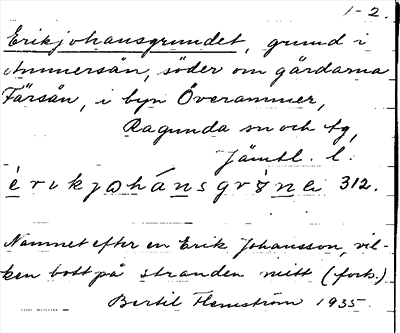 1-2.
Erikjohansgrundet, grund i
Ammersån, söder om gårdarna
Färsån, i byn Överammer,
Ragunda sn och tg,
Jämtl. l.
èrikjohánsgrǿna 312.
Namnet efter en Erik Johansson, vil-
ken bott på stranden mitt (fork.)
Bertil Flemström 1935.